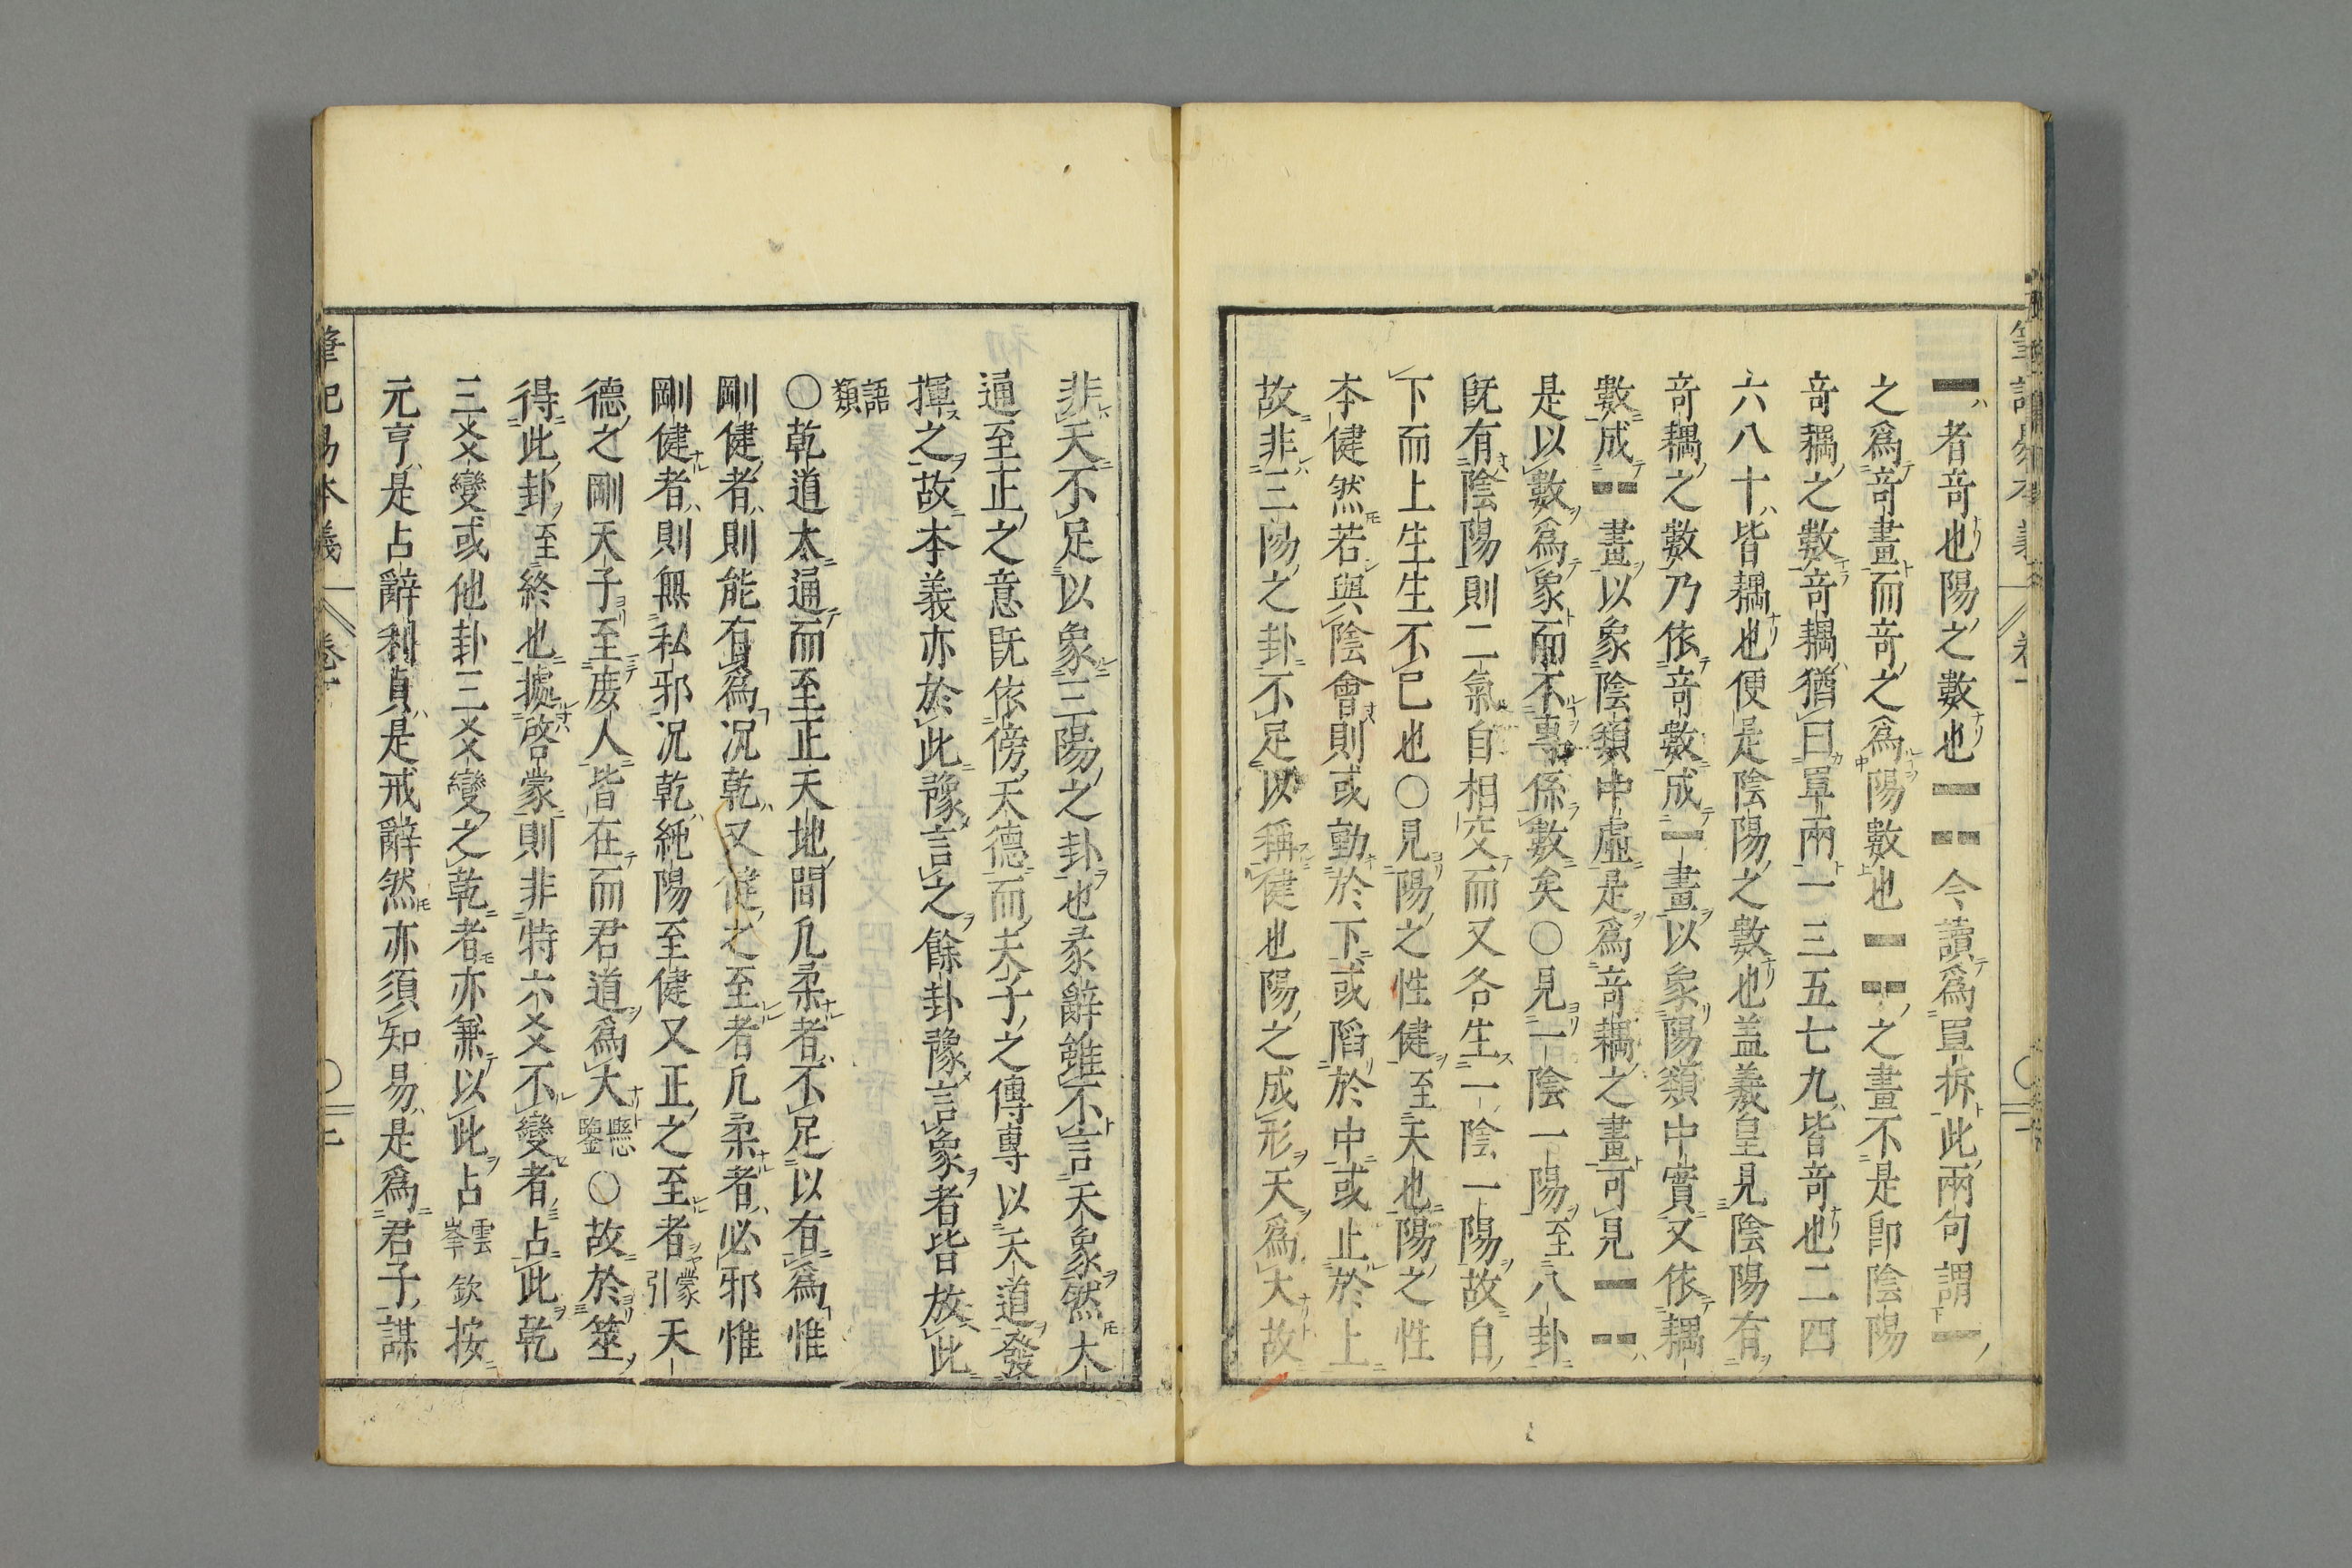 ⚊者竒也陽之數也⚊⚋今讀爲單拆此兩句謂⚊
之爲竒畫而竒之爲陽數也⚊⚋之畫不是卽陰陽
竒耦之數竒耦猶曰單兩一三五七九皆竒也二四
六八十皆耦也便是陰陽之數也盖羲皇見陰陽有
竒耦之數乃依竒數成⚊畫以象陽類中實又依耦
數成⚋畫以象陰類中虛是爲竒耦之畫可見⚊⚋
是以數爲象而不專係數矣〇見一陰一陽至八卦
旣有陰陽則二氣自相交而又各生一陰一陽故自
下而上生生不已也〇見陽之性健至天也陽之性
本健然若與陰會則或動於下或陷於中或止於上
故非三陽之卦不足以稱健也陽之成形天爲大故
非天不足以象三陽之卦也彖辭雖不言天象然大
通至正之意旣依傍天德而夫子之傳專以天道發
揮之故本義亦於此豫言之餘卦豫言象者皆放此
語類
〇乾道太通而至正天地間凢柔者不足以有爲惟
剛健者則能有爲况乾又健之至者凢柔者必邪惟
剛健者則無私邪况乾純陽至健又正之至者蒙引天
德之剛天子至庻人皆在而君道爲大懸鑒〇故於筮
得此卦至終也據啓蒙則非特六爻不變者占此乾
三爻變或他卦三爻變之乾者亦兼以此占雲峯欽按
元亨是占辭利貞是戒辭然亦須知易是爲君子謀
筆記易本義 卷一 〇 二